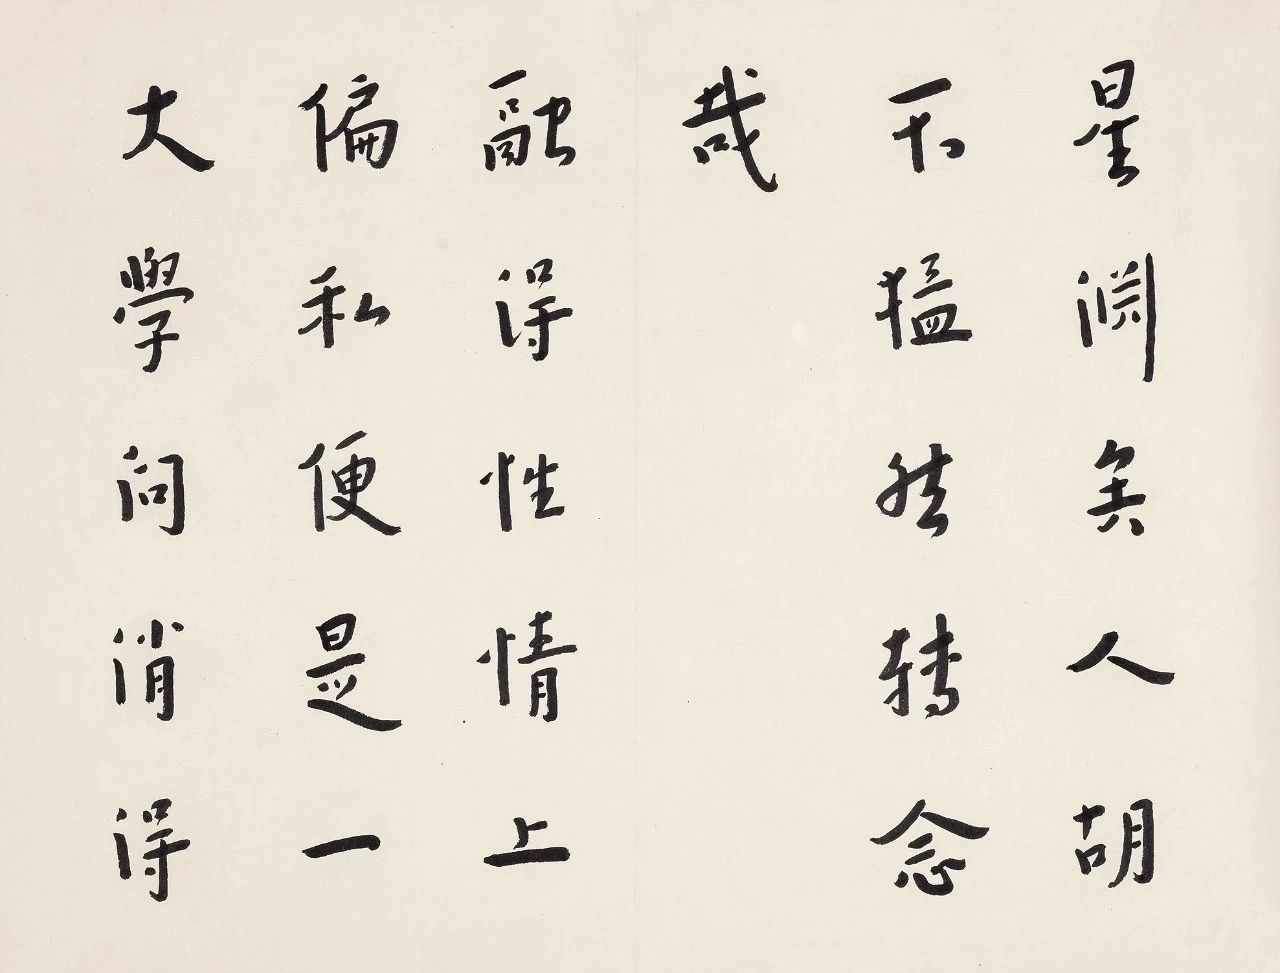 星淵矣人胡
不猛然轉念
哉
融得性情上
偏私便是一
大學問消得